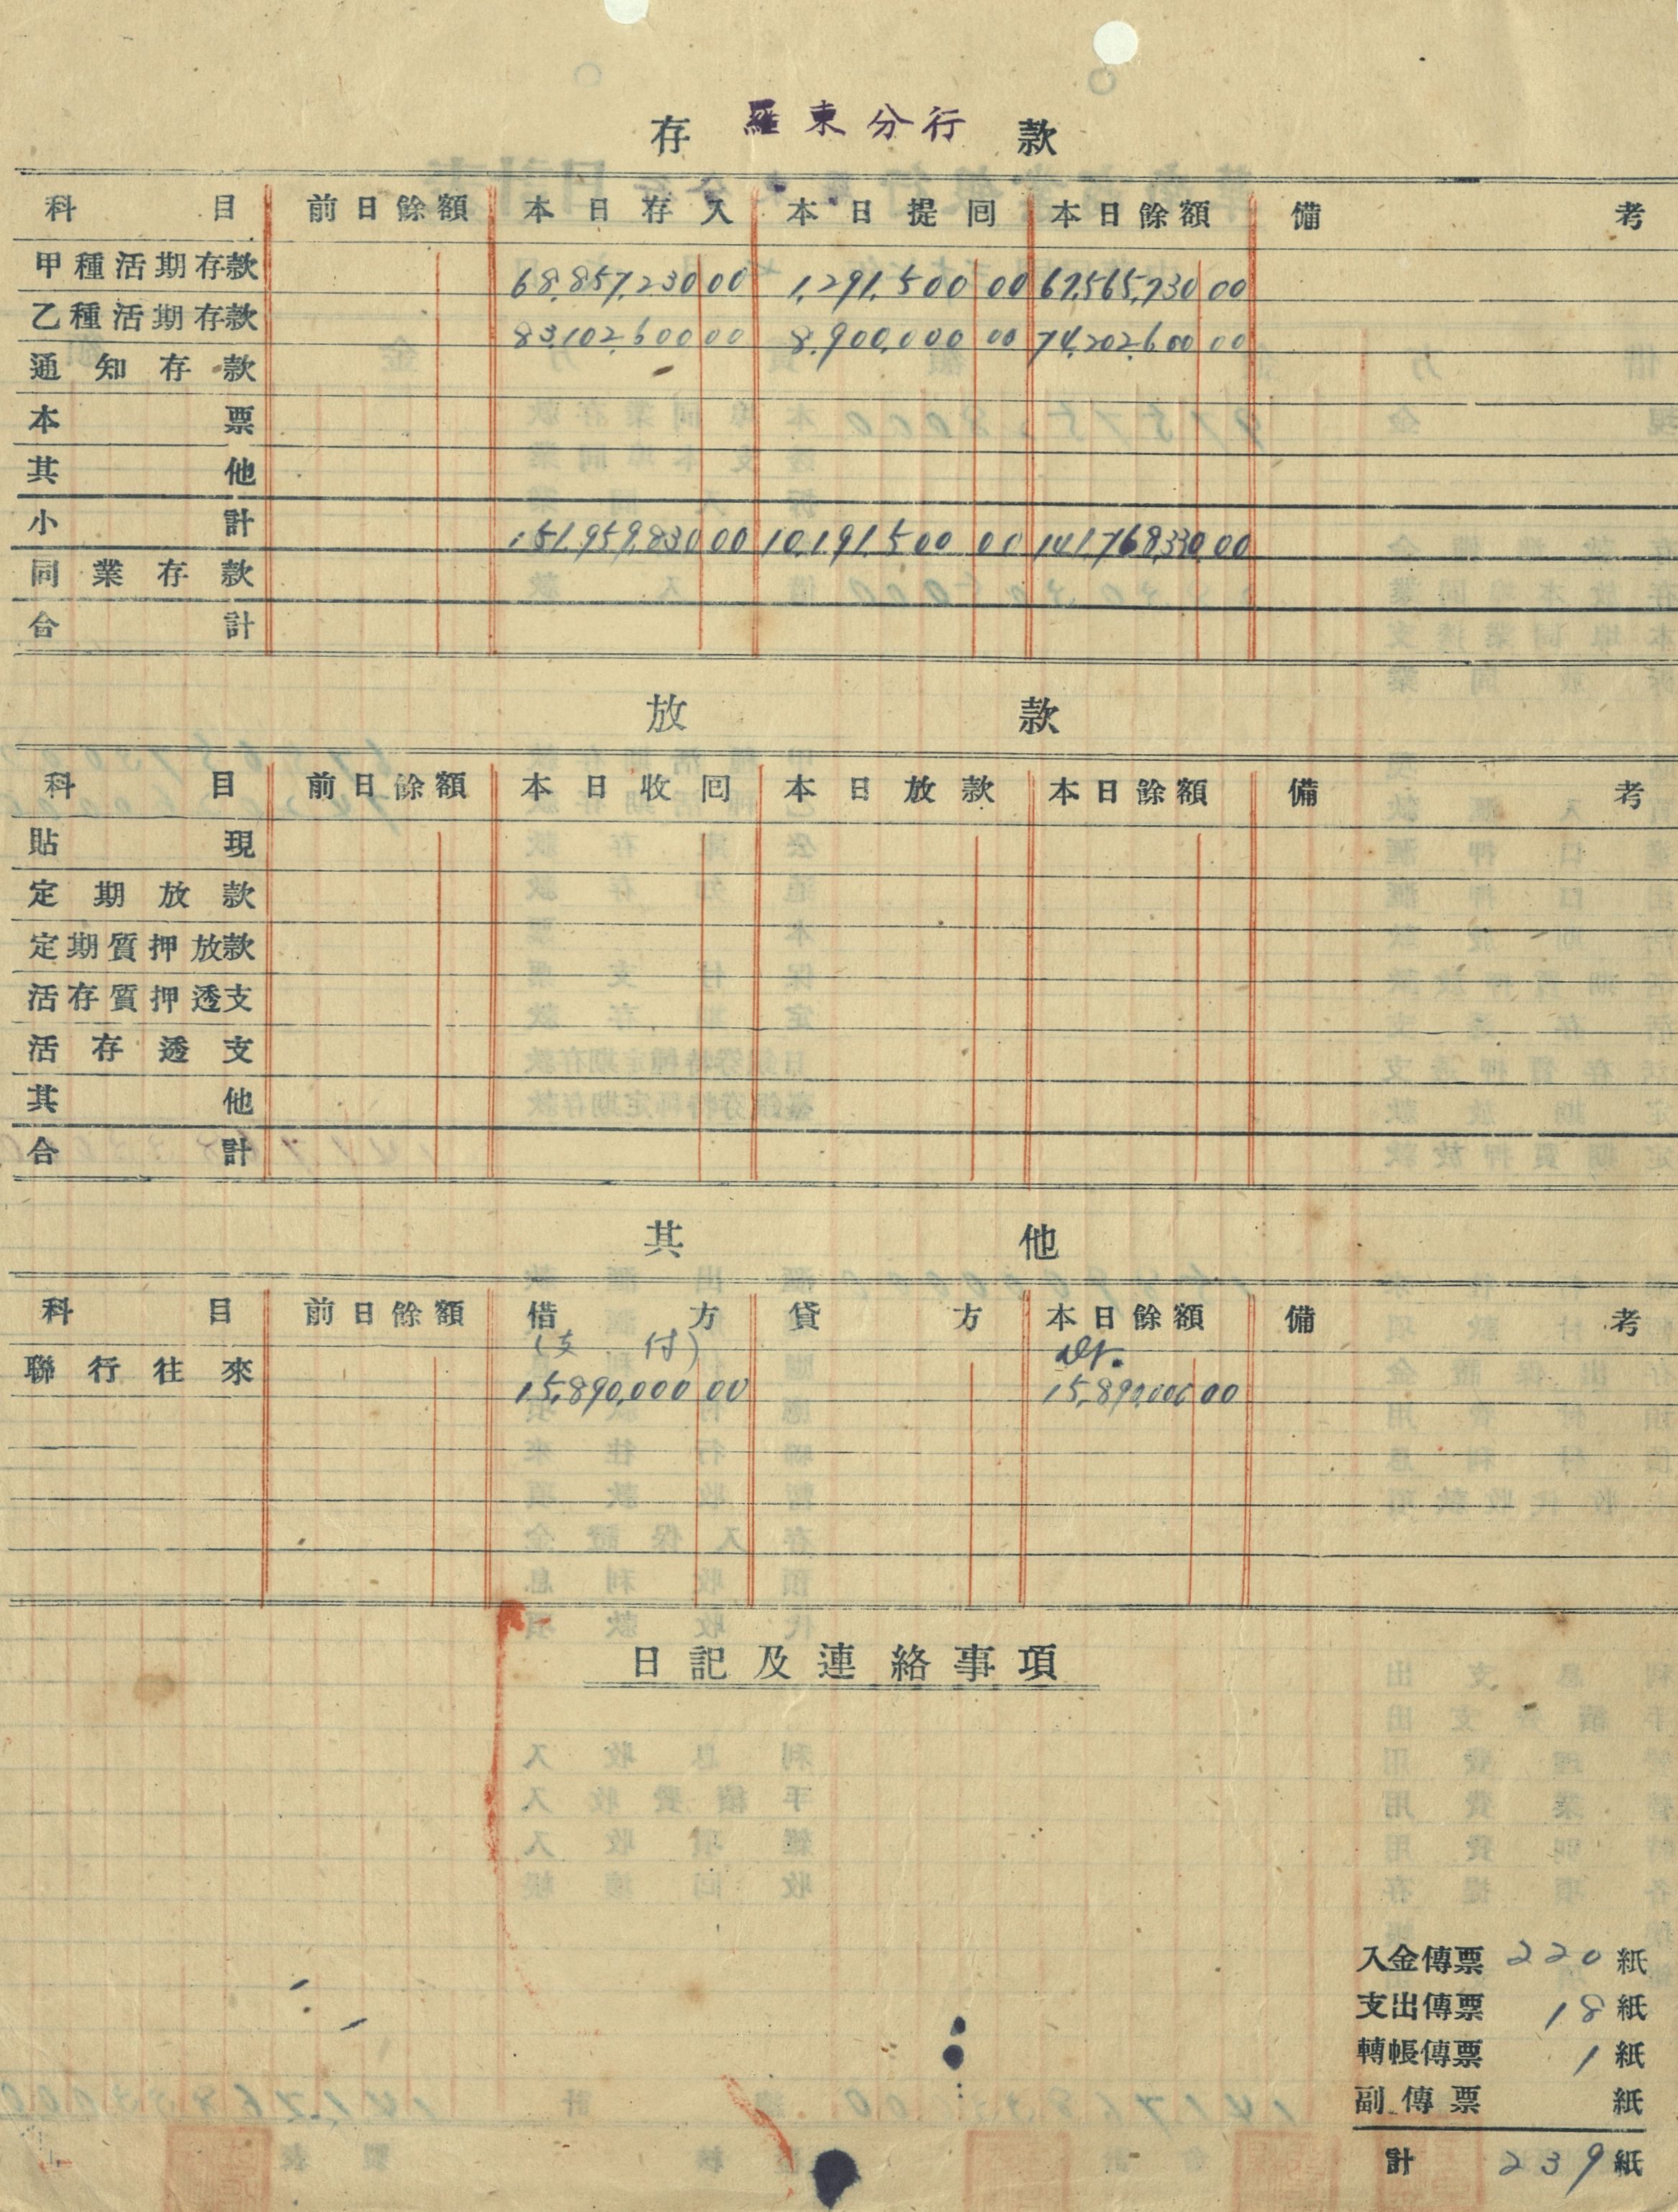 羅東分行
存款
科目 前日餘額 本日存入 本日提囘 本日餘額 備考
甲種活期存款 68,857,230 00 1,291,500 00 67,565,730 00
乙種活期存款 83,102,600 00 8,900,000 00 74,202,600 00
通知存款
本票
其他
小計 151,959,830 00 10,191,500 00 141,768,330 00
同業存款
合計
放款
科目 前日餘額 本日收囘 本日放款 本日餘額 備考
貼現
定期放款
定期質押放款
活存質押透支
活存透支
其他
合計
其他
科目 前日餘額 借方 貸方 本日餘額 備考
(支付) Dr.
聯行往來 15,890,000 00 15,890,000 00
日記及連絡事項
入金傳票 220 紙
支出傳票 18 紙
轉帳傳票 1 紙
副傳票 紙
計 239 紙